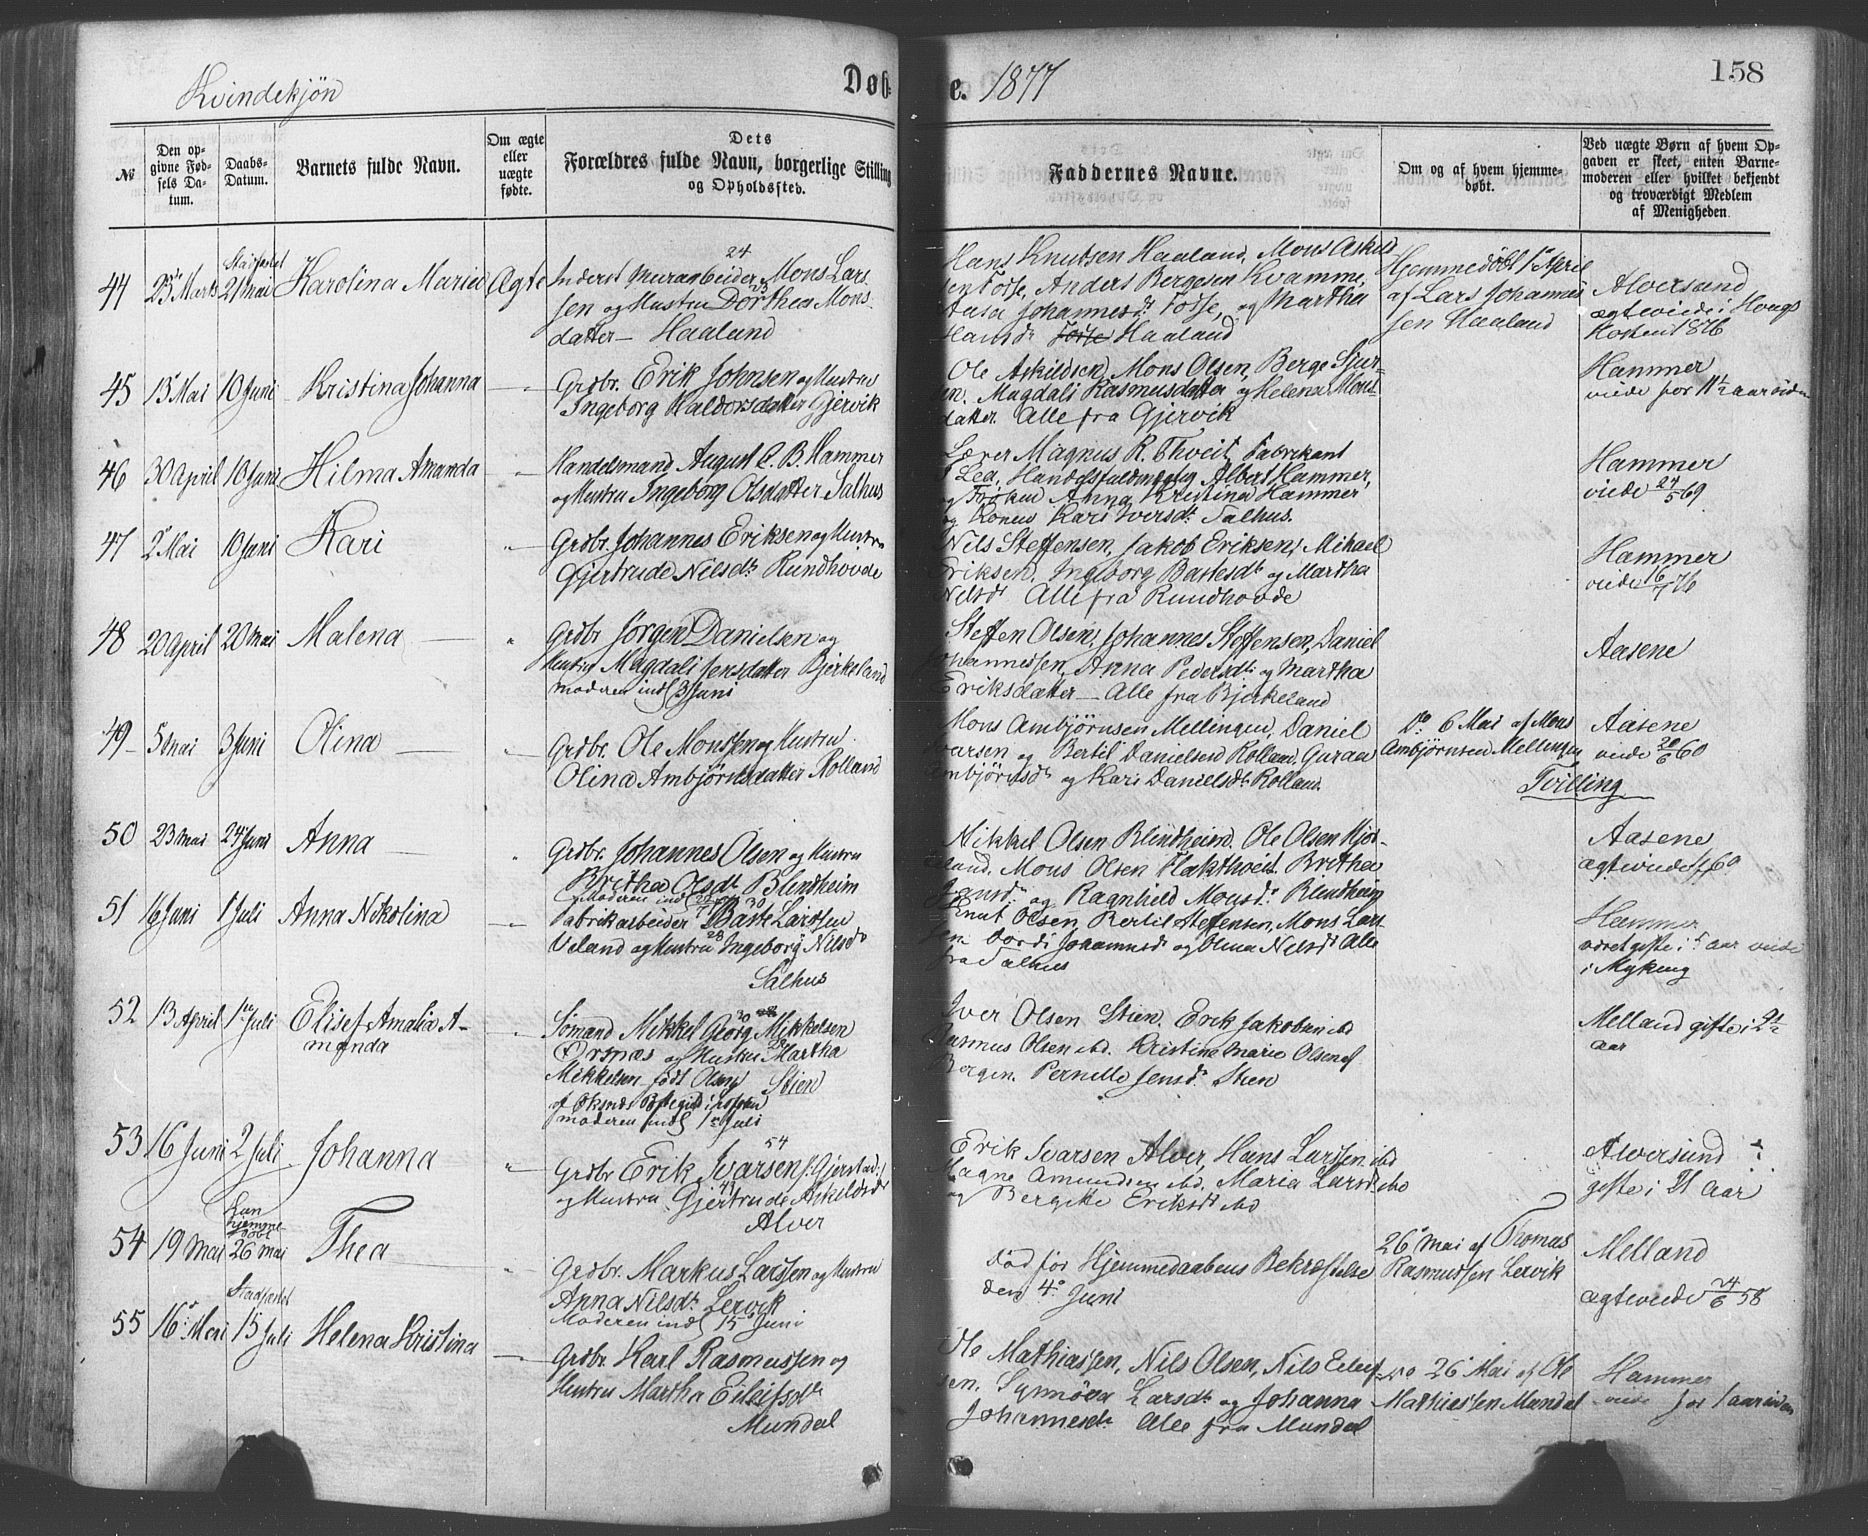 Kvindekjön
Døb
e. 1877
158
№
Den op-
givne Fød-
sels Da-
tum.
Daabs-
Datum.
Barnets fulde Navn.
Om ægte
eller
uægte
fødte.
Dets
Forældres fulde Navn, borgerlige Stilling
og Opholdssted.
Faddernes Navne.
Om og af hvem hjemme-
døbt.
Ved uægte Børn af hvem Op-
gaven er skeet, enten Barne-
moderen eller hvilket bekjendt
og troværdigt Medlem
af Menigheden.
44
Stadfæstet
21 Mai
Karolina Maria
Ægte
24
Inderst Murarbeider Mons Lars-
sen og Hustru Dorthea Mons-
datter – Haaland
Hans Knutsen Haaland, Mons Askild
sen Fosse, Anders Bergesen Kvamme,
Johannesdr Fosse, og Martha
Hansdr Fosse Haaland
Hjemmedöbt 1 April
af Lars Johannes
sen Haaland
Alversund
ægteviede i Houg
Høsten 1876
45
13 Mai
10 Juni
Kristina Johanna
Grdbr. Erik Johnsen og Hustru
Ingeborg Haldorsdatter Gjervik
Ole Askildsen, Mons Olsen, Berge Sjur-
sen. Magdali Rasmusdatter og Helena Mons-
datter. Alle fra Gjervik
Hammer
viede for 11½ aar siden
46
30 April
10 Juni
Hilma Amanda
Handelsmand August C. B. Hammer
og Hustru Ingeborg Olsdatter Salhus
Lærer Magnus R. Thveit, Fabrikant
Lea, Handelsfuldmægtig Albert Hammer,
og Frøken Anna Kristina Hammer
og Konen Kari Iversdr. Salhus.
Hammer
viede 24/5 69
47
2 Mai
10 Juni
Kari
Grdbr. Johannes Eriksen og Hustru
Gjertrude Nilsdr Rundhovde
Nils Steffensen, Jakob Eriksen, Mikael
Eriksen, Ingeborg Bastesdr og Martha
Nilsdr Alle fra Rundhovde
Hammer
viede 16/7 76
48
20 April
20 Mai
Malena
Grdbr Jörgen Danielsen og
Hustru Magdali Jensdatter Bjirkeland
moderen indl 3 Juni
Steffen Olsen, Johannes Steffensen, Daniel
Johannessen, Anna Pedersdr og Martha
Eriksdatter – Alle fra Bjirkeland
Aasene
49
5 Mai
3 Juni
Olina
Grdbr. Ole Monssen og Hustru
Olina Ambjörnsdatter Rolland
Mons Ambjörnsen Mellingen, Daniel
Ivarsen og Bertil Danielsen Rolland, Guraa
Ambjörnsdr og Kari Danielsdr Rolland.
Do 6 Mai af Mons
Ambjörnsen Mellingen
Tvilling
Aasene
viede 20/6 60
50
23 Mai
24 Juni
Anna
Grdbr. Johannes Olsen og Hustru
Britha Olsdr Blindheim
Moderen indl
Nikkel Olsen Blindheim, Ole Olsen Hjor-
land, Mons Olsen Flaktveit, Britha
Jansdr og Ragnhild Monsdr Blindheim
Aasene
ægteviede 69
51
16 Juni
1 Juli
Anna Nikolina
30
Fabrikarbeider Baste Larssen
28
Veland og Hustru Ingeborg Nilsdr
Salhus
Knut Olsen, Bertil Steffensen, Mons Lars-
sen Dordi Johannesdr og Olina Nilsdr Alle
fra Salhus
Hammer
været gifte i 5 aar viede
i Myking
52
13 April
1 Juli
Eliset Amalia A-
manda
30
Sømand Mikkel Georg Mikkelsen
og Hustru Martha
Mikkelsen født Olsen Stien
moderen indl 1 Juli
Iver Olsen Stien, Erik Jakobsen ibd
Rasmus Olsen ibd. Kristine Marie Olsen af
Bergen. Pernille Jensdr Stien
Melland gifte i 2½
aar
53
16 Juni
2 Juli
Johanna
54
Grdbr Erik Ivarsen /: Gjerstad :/
og Hustru Gjertrude Askildsdr
Alver
Erik Ivarsen Alver, Hans Larssen ibd
Magne Amundsen ibd. Maria Larsdr ibd
og Bergite Eriksdr ibd
Alversund
gifte i 21 aar
54
19 Mai
Kun
hjemme-
døbt
26 Mai
Thea
Grdbr. Markus Larssen og Hustru
Anna Nilsdr Lervik
Moderen indl 15 Juni
død før Hjemmedaabens Bekræftelse
den 4 Juni
26 Mai af Thomas
Rasmussen Lervik
Melland
ægteviede 24/6 58
55
16 Mai
Stadfæstet
15 Juli
Helena Kristina
Grdbr. Karl Rasmussen og
Hustru Martha Eilefsdr
Mundal
Ole Mathiassen, Nils Olsen, Nils Eilef-
sen. Synnöva Larsdr og Johanna
Johannesdr Alle fra Mundal
Do 26 Mai af Ole
Mathiassen Mundal
Hammer
viede for 1 aar siden